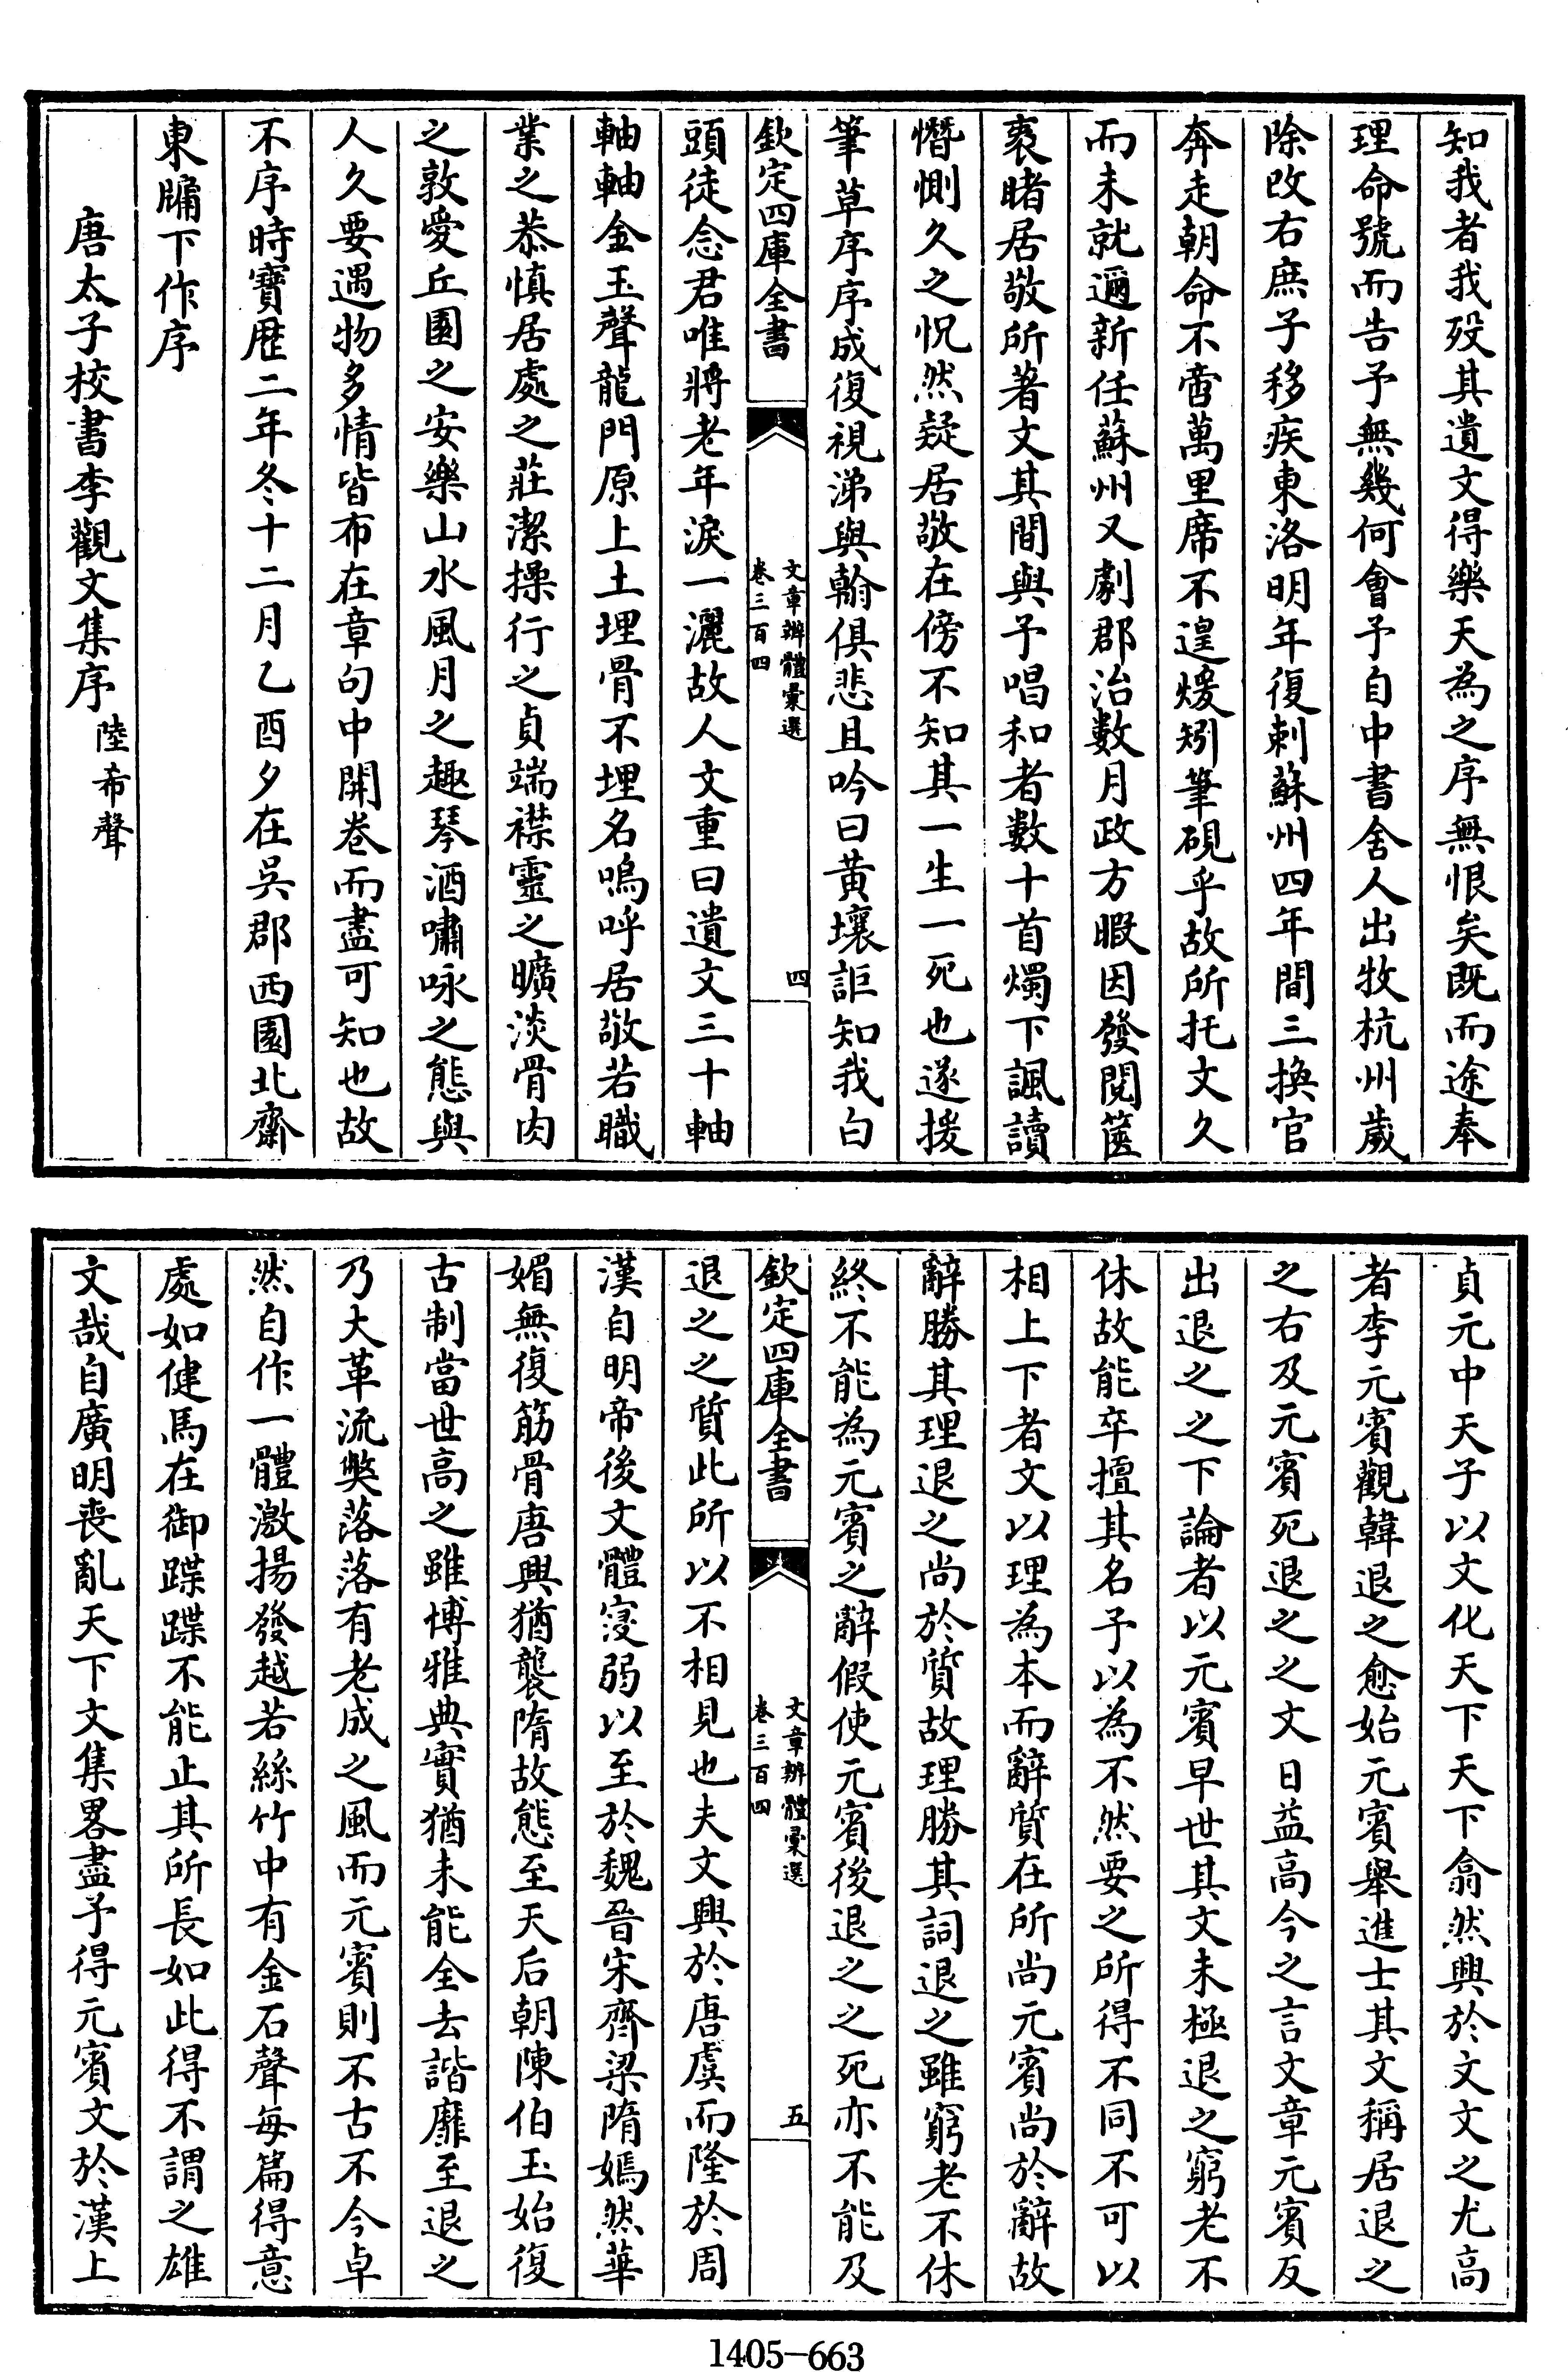 知我者我歿其遺文得樂天為之序無恨矣既而途奉
理命號而告予無幾何會予自中書舍人出牧杭州歲
除改右庶子移疾東洛明年復刺蘇州四年間三換官
奔走朝命不啻萬里席不遑煖矧筆硯乎故所托文久
而未就邇新任蘇州又劇郡治數月政方暇因發閱篋
袠睹居敬所著文其間與予唱和者數十首燭下諷讀
憯惻久之怳然疑居敬在傍不知其一生一死也遂援
筆草序序成復視涕與翰俱悲且吟曰黃壤詎知我白
欽定四庫全書
文章辨體彙選
卷三百四
四
頭徒念君唯將老年淚一灑故人文重曰遺文三十軸
軸軸金玉聲龍門原上土埋骨不埋名嗚呼居敬若職
業之恭慎居處之莊潔操行之貞端襟靈之曠淡骨肉
之敦愛丘園之安樂山水風月之趣琴酒嘯咏之態與
人久要遇物多情皆布在章句中開卷而盡可知也故
不序時寶歴二年冬十二月乙酉夕在吳郡西園北齋
東牖下作序
唐太子校書李觀文集序 陸希聲
貞元中天子以文化天下天下翕然興於文文之尤高
者李元賓觀韓退之愈始元賓舉進士其文稱居退之
之右及元賓死退之之文日益高今之言文章元賓反
出退之之下論者以元賓早世其文未極退之窮老不
休故能卒擅其名予以為不然要之所得不同不可以
相上下者文以理為本而辭質在所尚元賓尚於辭故
辭勝其理退之尚於質故理勝其詞退之雖窮老不休
終不能為元賓之辭假使元賓後退之之死亦不能及
欽定四庫全書
文章辨體彙選
卷三百四
五
退之之質此所以不相見也夫文興於唐虞而隆於周
漢自明帝後文體寖弱以至於魏晉宋齊梁隋嫣然華
媚無復筋骨唐興猶襲隋故態至天后朝陳伯玉始復
古制當世高之雖博雅典實猶未能全去諧靡至退之
乃大革流弊落落有老成之風而元賓則不古不今卓
然自作一體激揚發越若絲竹中有金石聲每篇得意
處如健馬在御蹀蹀不能止其所長如此得不謂之雄
文哉自廣明喪亂天下文集畧盡予得元賓文於漢上
1405-663